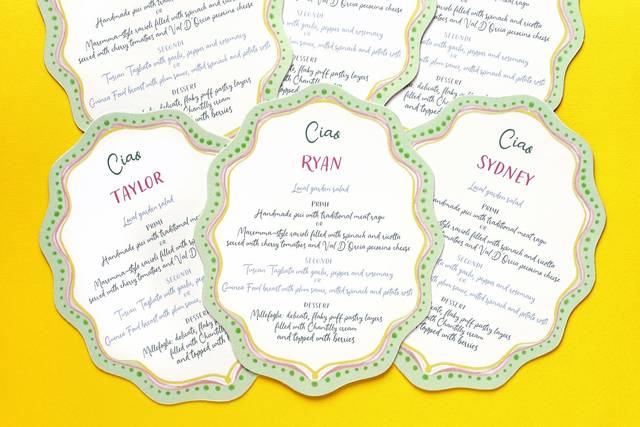 Handmade pici with traditional meat
OR
Maremma-style ravioli filled with spinach and ricotta
served with cherry tomatoes and Val D'Orcia pecorino cheese
SECONDI
Tuscan Tagliata with garlic, pepper and rosemary
OR
Guinea Fowl breast with plum sauce, wilted spinach and potato rosti
DESSERT
delicate, flaky puff pastry layers
filled with Chantilly cream
with berries
filled with spinach and ricotta
and Val D'Orcia pecorino cheese
SECONDI
with garlic, pepper and rosemary
OR
with plum sauce, wilted spinach and potato rosti
DESSERT
delicate, flaky puff pastry layers
filled with Chantilly cream
and topped with berries
OR
filled with spinach and ricotta
tomatoes and Val D'Orcia pecorino cheese
SECONDI
with garlic, pepper and rosemary
OR
with plum sauce, wilted spinach and potato rosti
DESSERT
delicate, flaky puff pastry layers
filled with Chantilly cream
and topped with berries
Ciao
TAYLOR
Local garden salad
PRIMI
Handmade pici with traditional
OR
Maremma-style ravioli filled with
served with cherry tomatoes and Val D'
SECONDI
Tuscan Tagliata with garlic,
OR
Guinea Fowl breast with plum sauce,
DESSERT
Millefoglie: delicate, flaky
filled with
and topped
Ciao
RYAN
Local garden salad
PRIMI
Handmade pici with traditional meat ragu
OR
Maremma-style ravioli filled with spinach and ricotta
served with cherry tomatoes and Val D'Orcia pecorino cheese
SECONDI
Tuscan Tagliata with garlic, pepper and rosemary
OR
Guinea Fowl breast with plum sauce, wilted spinach and potato rosti
DESSERT
Millefoglie: delicate, flaky puff pastry layers
filled with Chantilly cream
and topped with berries
Ciao
SYDNEY
Local garden salad
PRIMI
with traditional meat ragu
OR
ravioli filled with spinach and ricotta
tomatoes and Val D'Orcia pecorino cheese
SECONDI
with garlic, pepper and rosemary
OR
with plum sauce, wilted spinach and potato rosti
DESSERT
delicate, flaky puff pastry layers
filled with Chantilly cream
and topped with berries